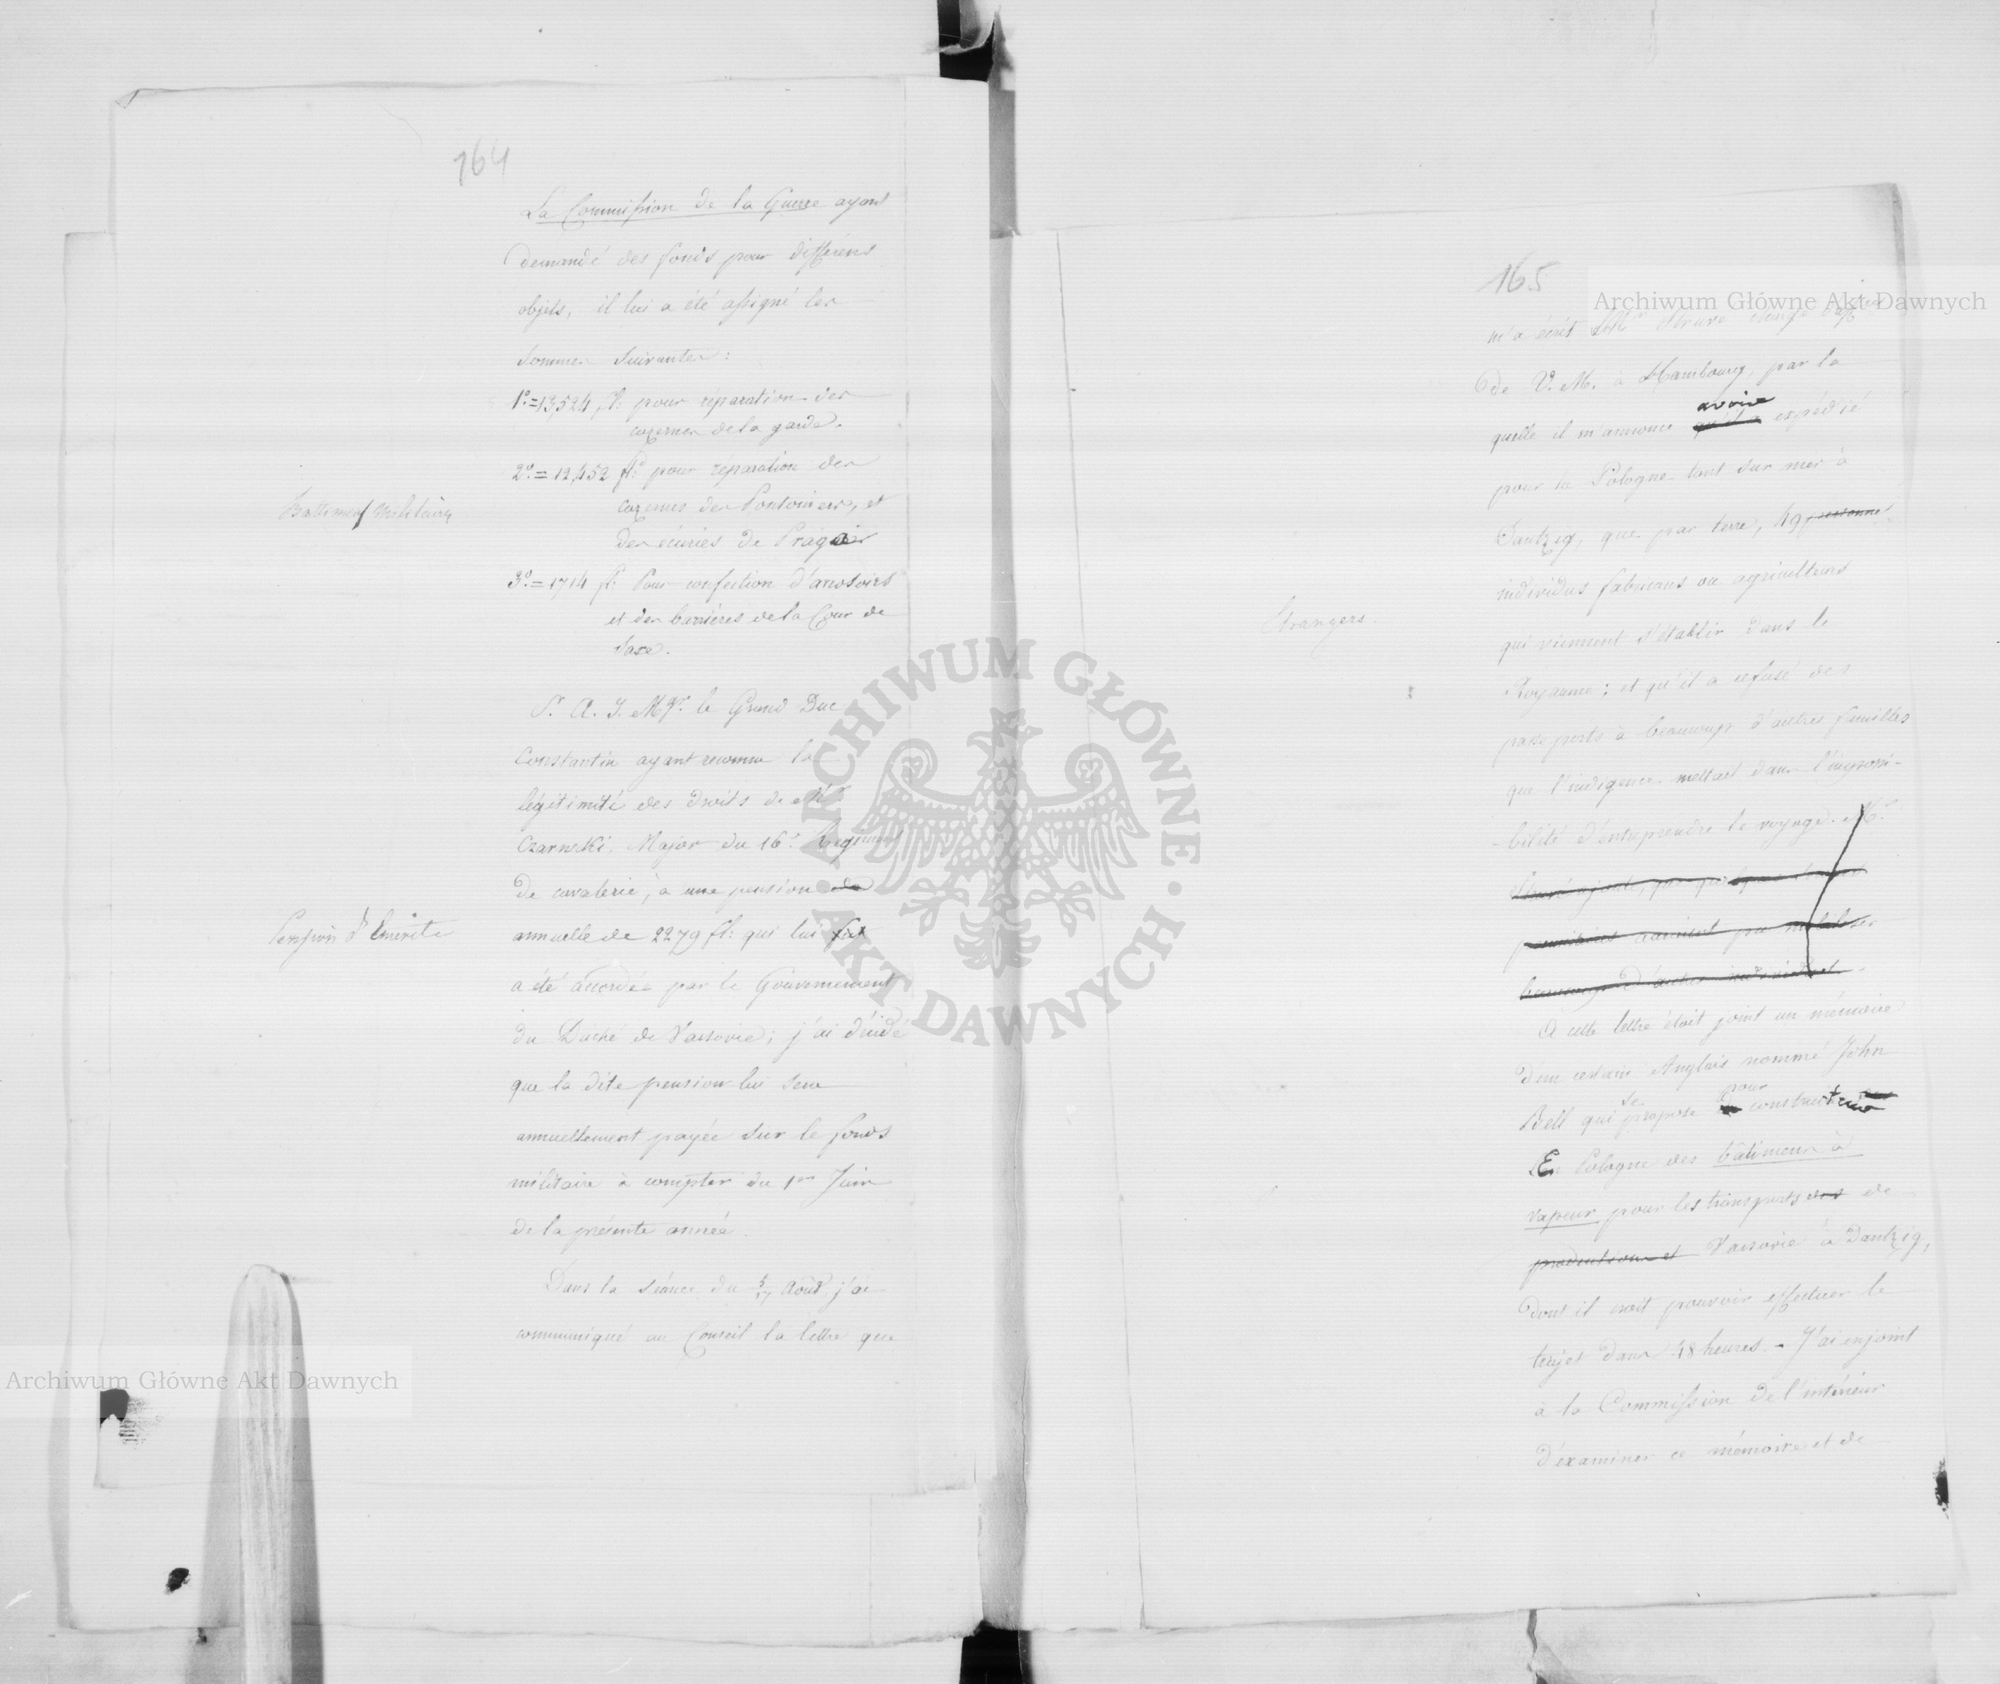 164
La Commission de la Guerre ayant
demandé des fonds pour différens
objets, il lui a été assigné les
sommes suivantes :
1º = 13,524 fl: pour réparation des
cazernes de la garde.
2º = 12,452 fl: pour réparation des
cazernes des Pontoniers, et
des écuries de Praga
3º = 1714 fl: Pour confection
et des barrières de la Cour de
Saxe.
Battimens Militaires
S. A. I. Mgr. le Grand Duc
Constantin ayant reconnu la
légitimité des droits de Mr
Czarnski, Major du 16e Régiment
de cavalerie, à une pension
annuelle de 2279 fl: qui lui
a été accordée par le Gouvernement
du Duché de Varsovie ; j'ai décidé
que la dite pension lui sera
annuellement payée sur le fonds
militaire à compter du 1er Juin
de la présente année.
Pension d'Emérite
Dans la séance du 5/17 Août j'ai
communiqué au Conseil la lettre que
165
Archiwum Główne Akt Dawnych
m'a écrit Mr Struve chargé
de V. M. à Hambourg, par la
quelle il m'annonce avoir expédié
pour la Pologne tant sur mer à
Dantzig, que par terre, 49 personnes
individus fabricans ou agriculteurs
qui viennent s'établir dans le
Royaume ; et qu'il a refusé des
passeports à beaucoup d'autres familles
que l'indigence mettait dans l'impossi-
-bilité d'entreprendre le voyage. Mr
Etrangers.
A cette lettre était joint un mémoire
d'un certain Anglais nommé John
Bell qui se propose pour construire
En Pologne des bâtimens à
vapeur pour les transports de
productions et Varsovie à Dantzig,
dont il croit pouvoir effectuer le
trajet dans 48 heures. - J'ai enjoint
à la Commission de l'intérieur
d'examiner ce mémoire et de
ARCHIWUM GŁÓWNE
AKT DAWNYCH
Archiwum Główne Akt Dawnych